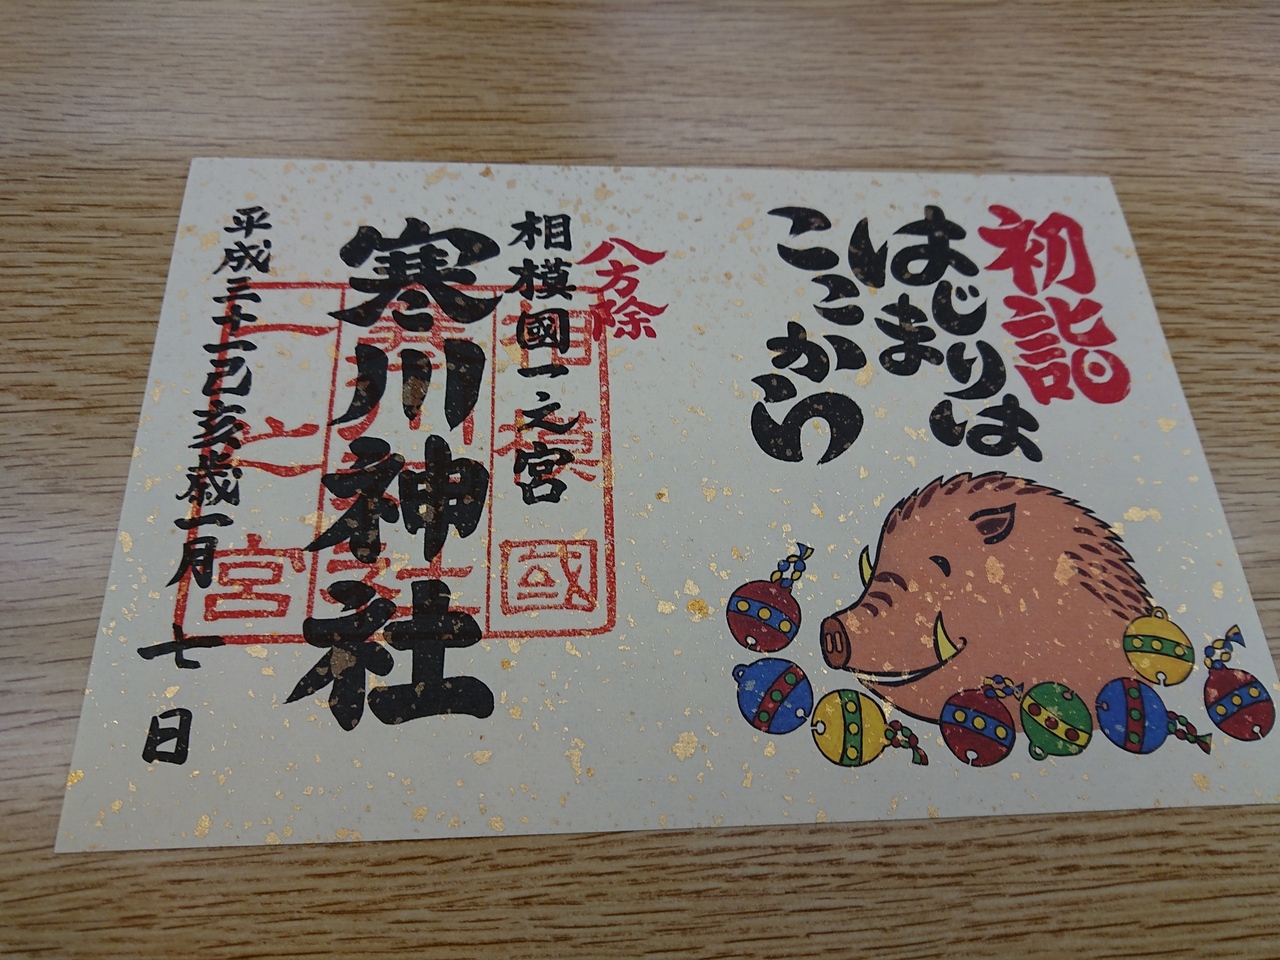 初詣
はじまりは
はまり
ここから
八方除
相模國一之宮
寒川神社
平成三十一己亥歳一月
七日
相模國
寒川神社
一之宮